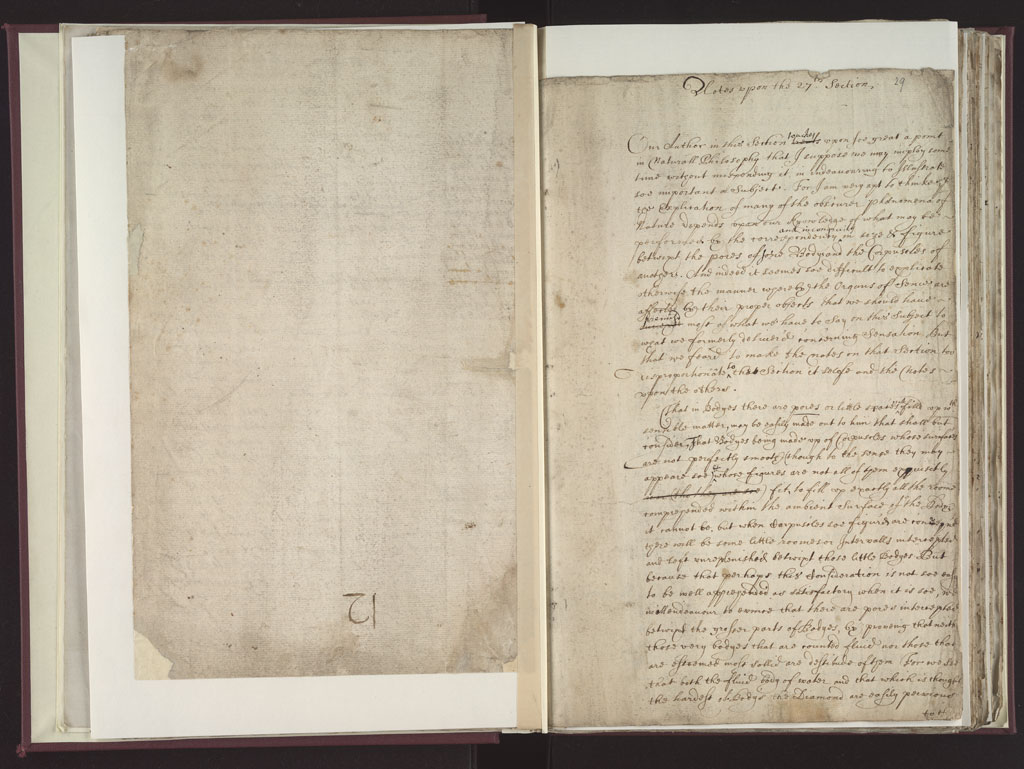 12
Notes upon the 27th Section,
29
Our Author in this Section touches upon soe great a point
in Naturall Philosophy that I suppose we may imploy some
time without mispending it in indeavouring to Illustrate
soe important a Subject. For I am very apt to thinke
the Explication of many of the obscurer phænomena of
Nature depends upon our knowledge of what may be
performed by the correspondency and incongruity in size & figure
betwixt the pores of some Body and the Corpuscles of
another. And indeed it seemes soe difficult to explicate
otherwise the manner whereby the Organs of Sence are
affected by their proper objects that we should have
premis'd most of what we have to say on this Subject to
what we formerly deliver'd concerning Sensation, But
that we fear'd to make the notes on that Section too
disproportionate to that Section it selfe and the Notes
upon the others.
That in Bodyes there are pores or little spaces not fill'd up with
sensible matter, may be easily made out to him that shall but
consider, That Bodyes being made up of Corpuscles whose surfaces
are not perfectly smooth (though to the sense they may
appeare soe) & whose figures are not all of them exquisitly
fit, to fill up exactly all the roome
comprehended within the ambient Surface of the Body
it cannot be, but when Corpuscles soe figur'd are
there will be some little roomes or Intervalls intercepted
and left unreplenished betwixt those little Bodyes But
because that perhaps this Consideration is not soe easy
to be well apprehended as satisfactory when it is soe, we
will endeavour to evince that there are pores intercepted
betwixt the grosser parts of Bodyes, by proveing that neither
those very bodyes that are counted fluid nor those that
are esteemed most sollid are destitute of them For we see
that both the fluid body of water and that which is thought
the hardest of Bodys the Diamond are easily pervious